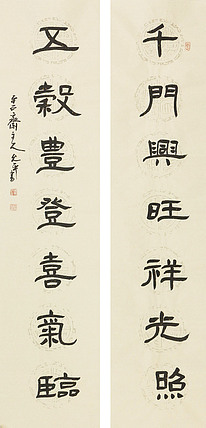 千門興旺祥光照
五穀豊登喜氣臨